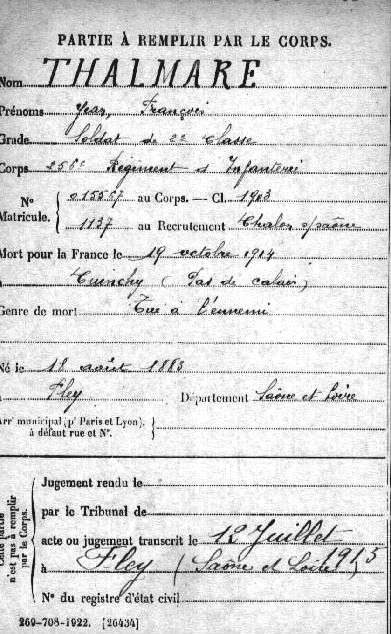 PARTIE À REMPLIR PAR LE CORPS.
Nom THALMARE
Prénoms Jean, François
Grade Soldat de 2e classe
Corps 256e Régiment d'Infanterie
N° Matricule. { 015567 au Corps. — Cl. 1903
1137 au Recrutement Chalon s/saône
Mort pour la France le 19 octobre 1914
à Cuinchy (Pas de calais)
Genre de mort Tué à l'ennemi
Né le 18 août 1883
à Fley Département Saône et Loire
Arrt municipal (pr Paris et Lyon), à défaut rue et N°. }
Cette partie n'est pas à remplir par le Corps.
Jugement rendu le
par le Tribunal de
acte ou jugement transcrit le 12 Juillet 1915
à Fley (Saône et Loire)
N° du registre d'état civil
269-708-1922. [26434]